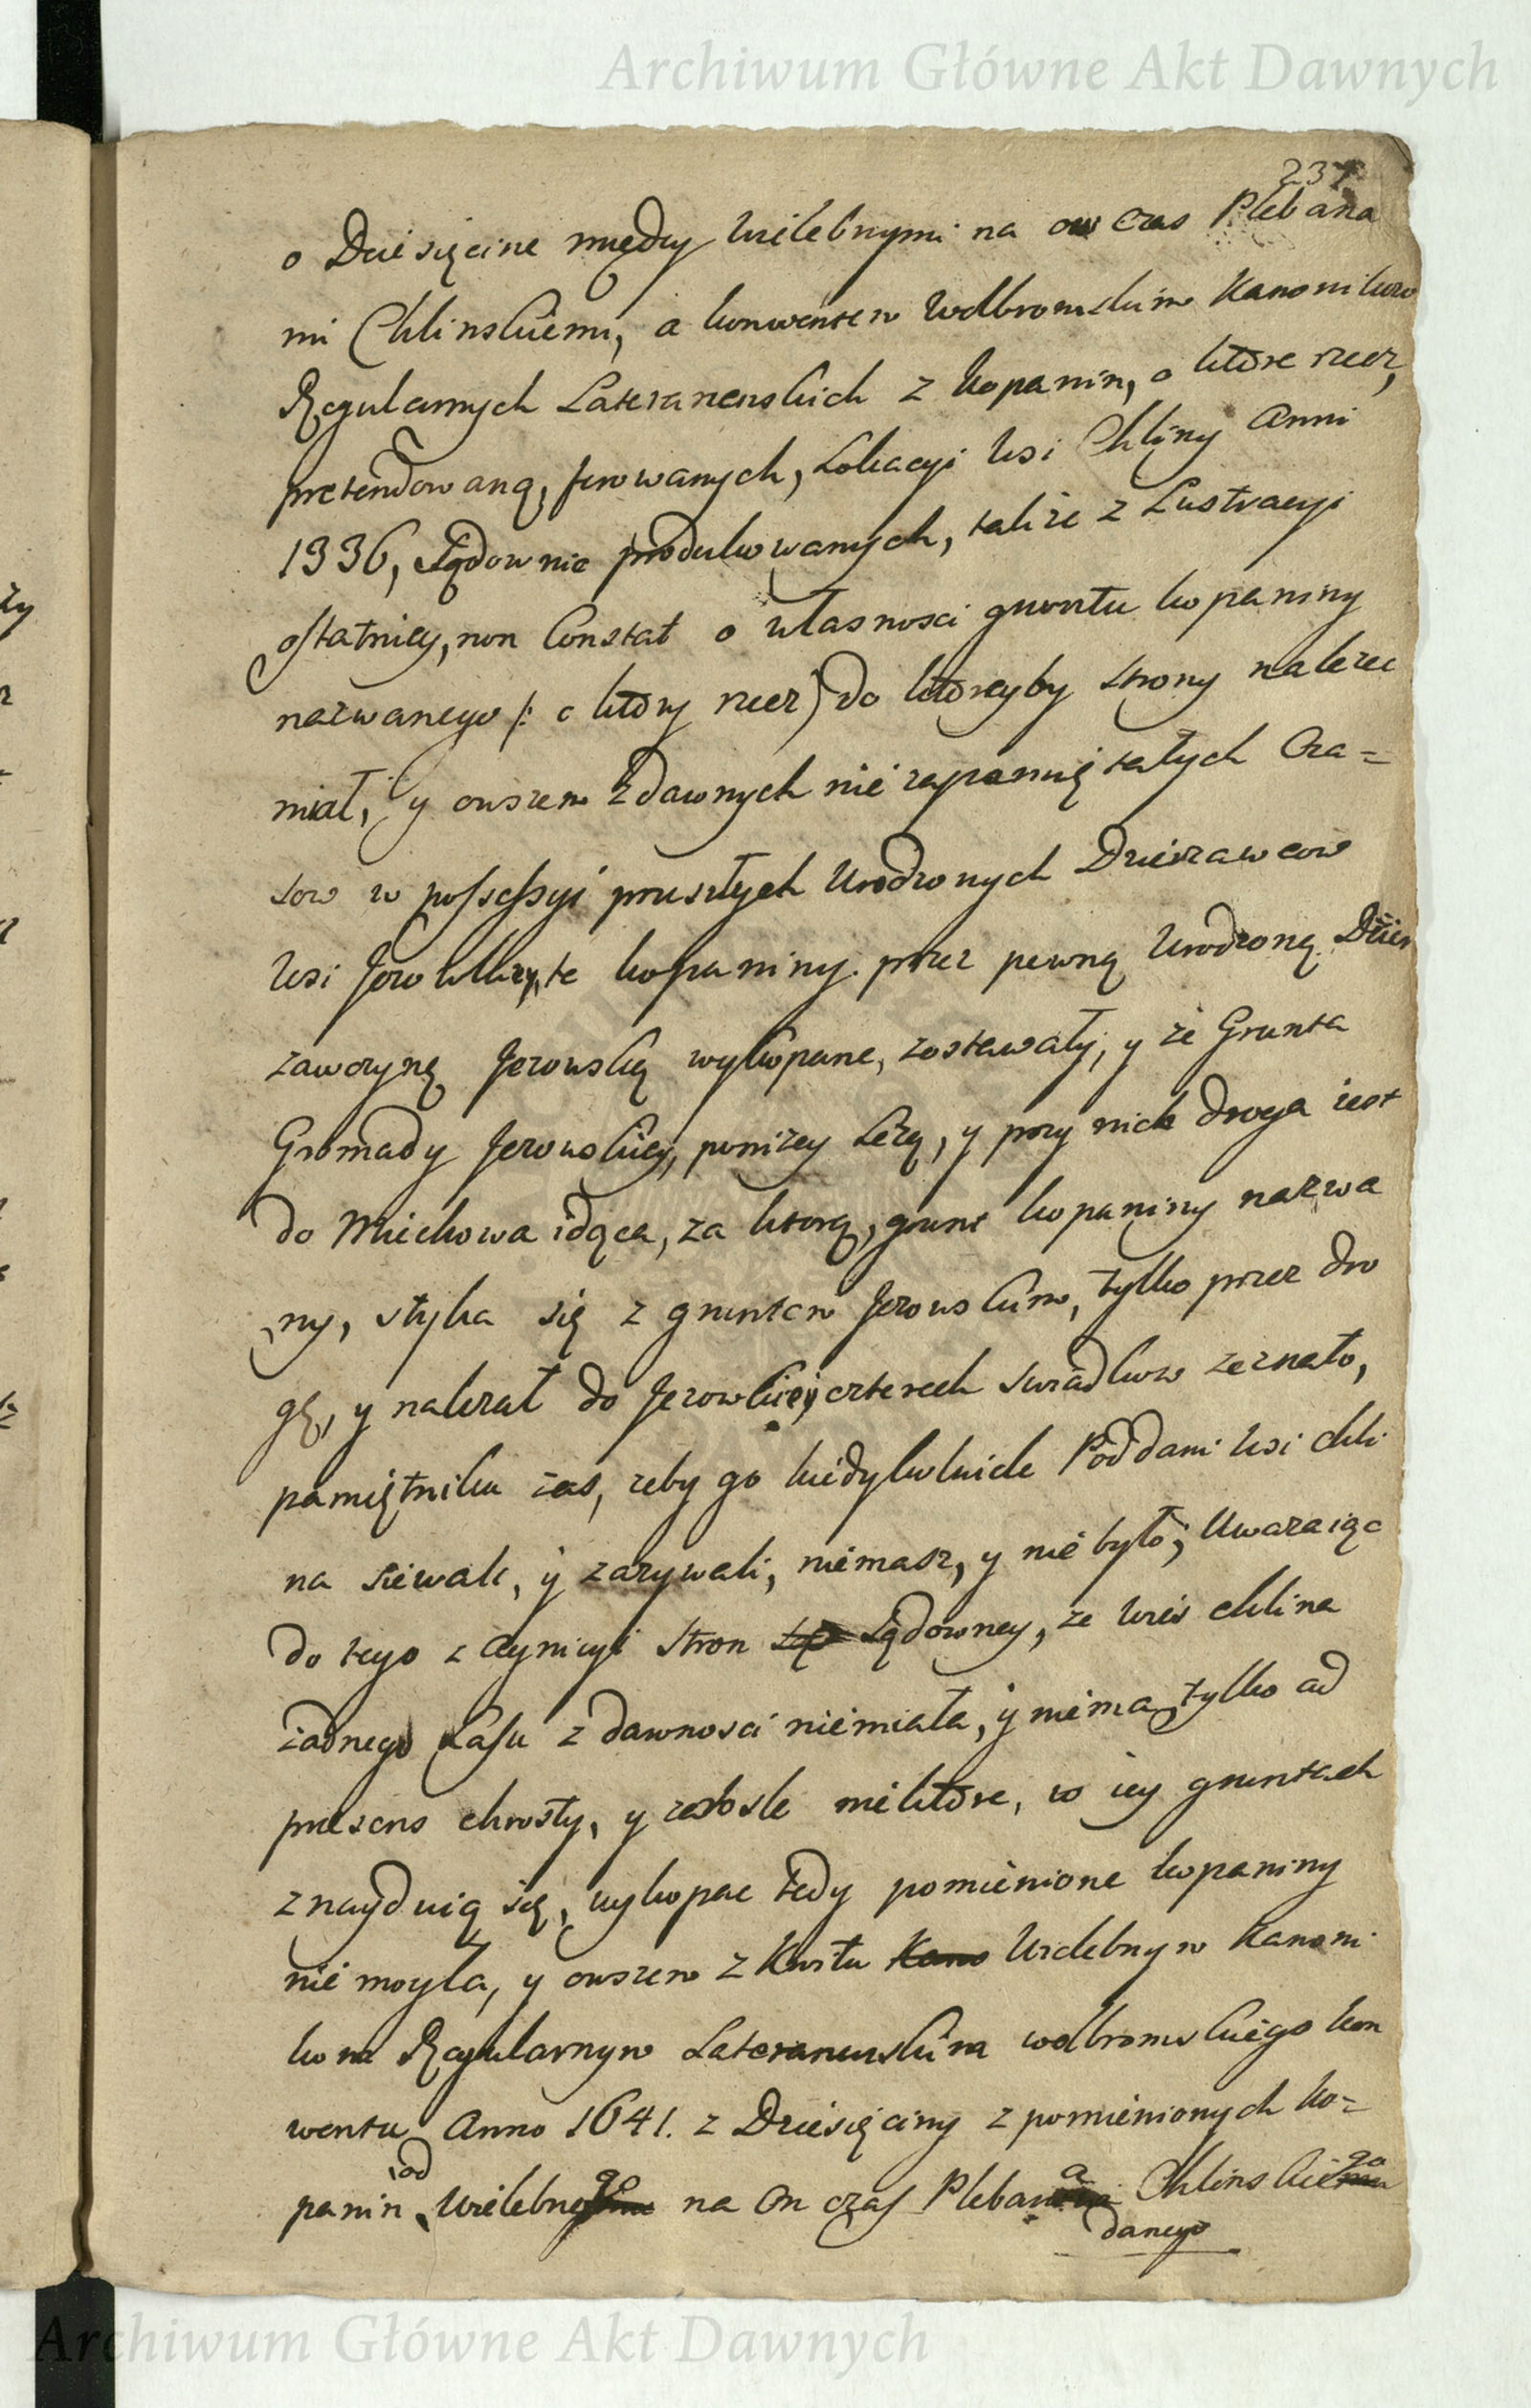 Archiwum Główne Akt Dawnych
237
o Dziesięcine między Wielebnymi na ow czas Plebana
mi Chlinskiemi, a konwentem Wolbromskim Kanonikow
Regularnych Lateranenskich z kopanin, o ktore rzecz,
pretendowaną, ferowanych, Lokacyi Wsi Chliny Anni
1336, Sądownie produkowanych, także z Lustracyi
ostatniey, non Constat o własnosci gruntu kopaniny
nazwanego /: o ktory rzecz) do ktoreyby strony nalezec
miał, y owszem z dawnych nie zapamiętałych Cza=
sow w possessyi przeszłych Urodzonych Dzierzawcow
Wsi Jerowki, te kopaniny przez pewną Urodzoną Dzier
zawczynę Jerowską wykopane, zostawały, y że Grunta
Gromady Jerowskiey, ponizey Leżą, y przy nich droga iest
do Miechowa idąca, za ktorą, grunt kopaniny nazwa
ny, styka się z gruntem Jerowskim, tylko przez dro
gę, y nalezał do Jerowskiey czterech swiadkow zeznało,
pamiętnika zas, zeby go kiedykolwiek Poddani Wsi chli
na siewali, y zazywali, niemasz, y nie było; Uwazaiąc
do tego z Cognicyi stron Sądowney, ze Wies chlina
żadnego Lasu z dawnosci niemiała, y niema, tylko ad
presens chrosty, y zarosle niektore, w iey gruntach
znayduią się, wykopac tedy pomienione kopaniny
nie mogła, y owszem z Kwitu Kano Wielebnym Kanoni
kom Regularnym Lateranenskim wolbromskiego kon
wentu Anno 1641. z Dziesięciny z pomienionych ko=
panin, od Wielebnego na On czas Plebana Chlinskiego
danego
Archiwum Główne Akt Dawnych